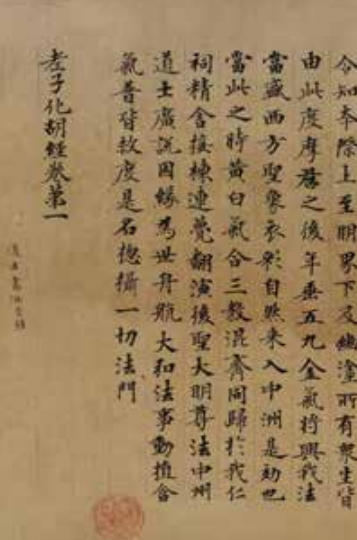 令知本際上至明界下及幽塗所有衆生皆
由此度摩尼之後年垂五九金氣將興我法
當盛西方聖象衣彩自然來入中洲是効也
當此之時黄白氣合三教混齊同歸於我仁
祠精舍接棟連甍翻演後聖大明尊法中州
道士廣說因緣為世舟航大弘法事動植含
氣普皆救度是名惣攝一切法門
老子化胡經卷第一